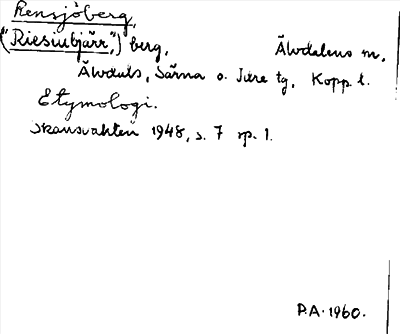 Rensjöberg,
("Riesiubjärr",) berg, Älvdalens m,
Älvdals, Särna o. Idre tg, Kopp. l.
Etymologi.
Skansvakten 1948, s. 7 sp. 1.
P.A. 1960.